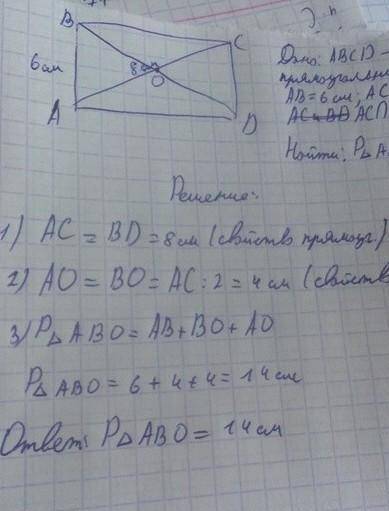 B
C
6см
8см
O
A
D
Дано: ABCD -
прямоугольник
AB = 6 см; AC
ACП
Найти: P△ A
Решение:
1) AC = BD = 8 см (свойств прямоуг.)
2) AO = BO = AC : 2 = 4 см (свойств
3) P△ ABO = AB + BO + AO
P△ ABO = 6 + 4 + 4 = 14 см
Ответ: P△ ABO = 14 см